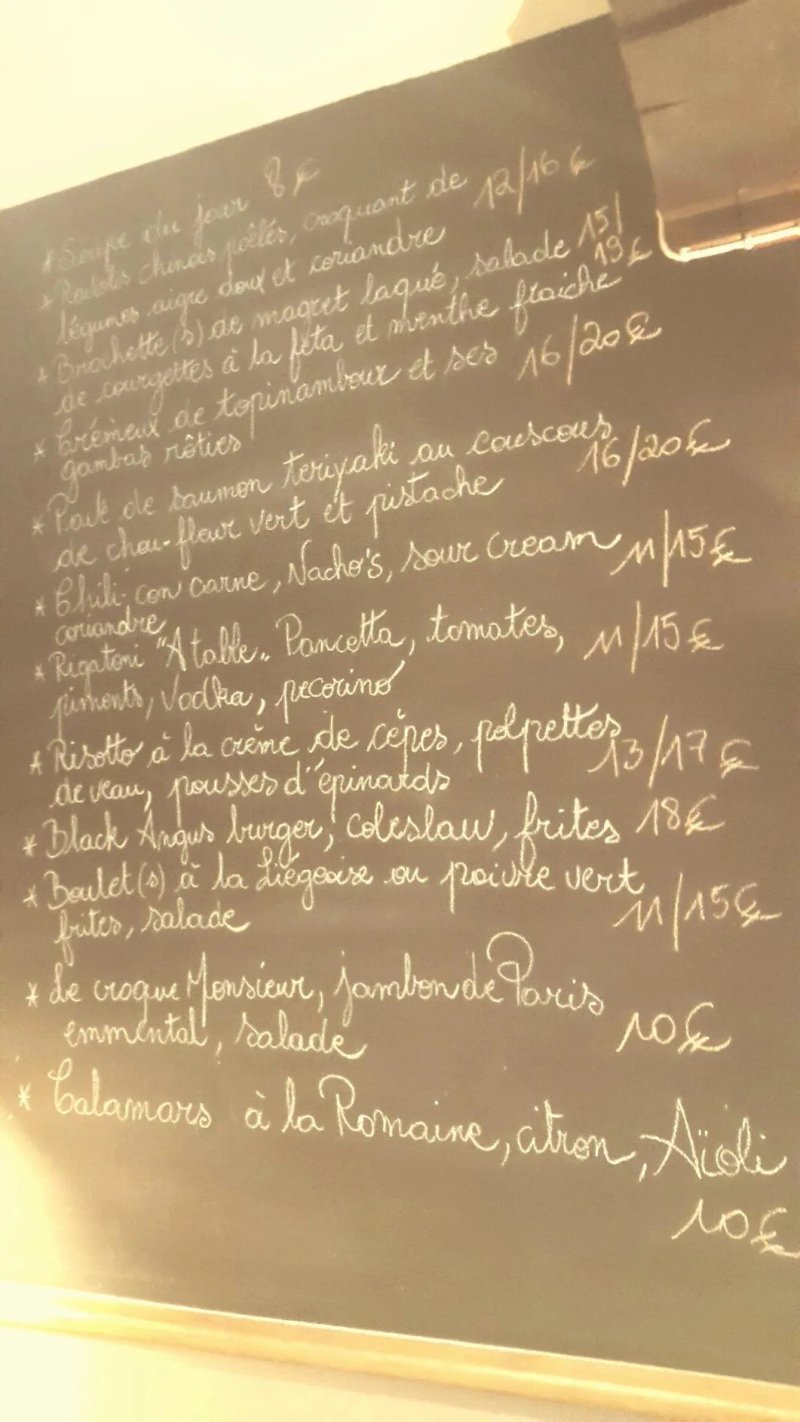 * Soupe du jour 8 €
* Raviolis chinois poêlés, croquant de 12/16 €
légumes aigre doux et coriandre
* Brochette(s) de magret laqué, salade 15/
de courgettes à la féta et menthe fraîche 19 €
* Crémeux de topinambour et ses 16/20 €
gambas rôties
* Pavé de saumon teriyaki au couscous 16/20 €
de chou-fleur vert et pistache
* Chili con carne, Nacho's, sour cream 11/15 €
coriandre
* Rigatoni "A table" Pancetta, tomates, 11/15 €
piments, Vodka, pecorino
* Risotto à la crème de cèpes, polpettes 13/17 €
de veau, pousses d'épinards
* Black Angus burger, coleslaw, frites 18 €
* Boulet(s) à la Liégeoise ou poivre vert 11/15 €
frites, salade
* Le croque Monsieur, jambon de Paris
emmental, salade 10 €
* Calamars à la Romaine, citron, Aïoli
10 €